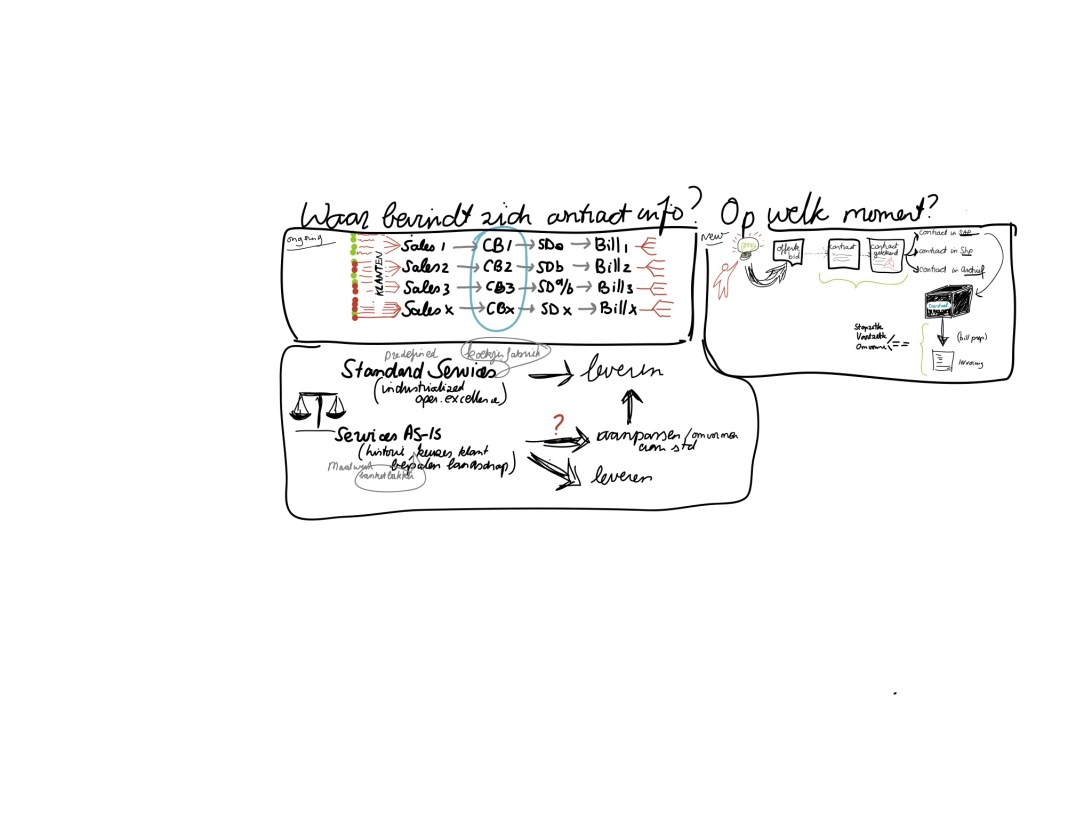 Waar bevindt zich contract info? Op welk moment?
ongoing
KLANTEN
Sales 1 → CB1 → SDa → Bill1
Sales 2 → CB2 → SDb → Bill2
Sales 3 → CB3 → SDa/b → Bill3
Sales x → CBx → SDx → Billx
New
offerte
bid
contract
contract
getekend
contract in SAP
contract in Shp
contract in archief
(bill prep)
Predefined
koekjesfabriek
Standard Services → leveren
(industrialized
oper. excellence)
Services AS-IS
(historiek, keuzes klant
bepalen landschap)
Maatwerk
banketbakker
?
aanpassen / omvormen
aan std
leveren